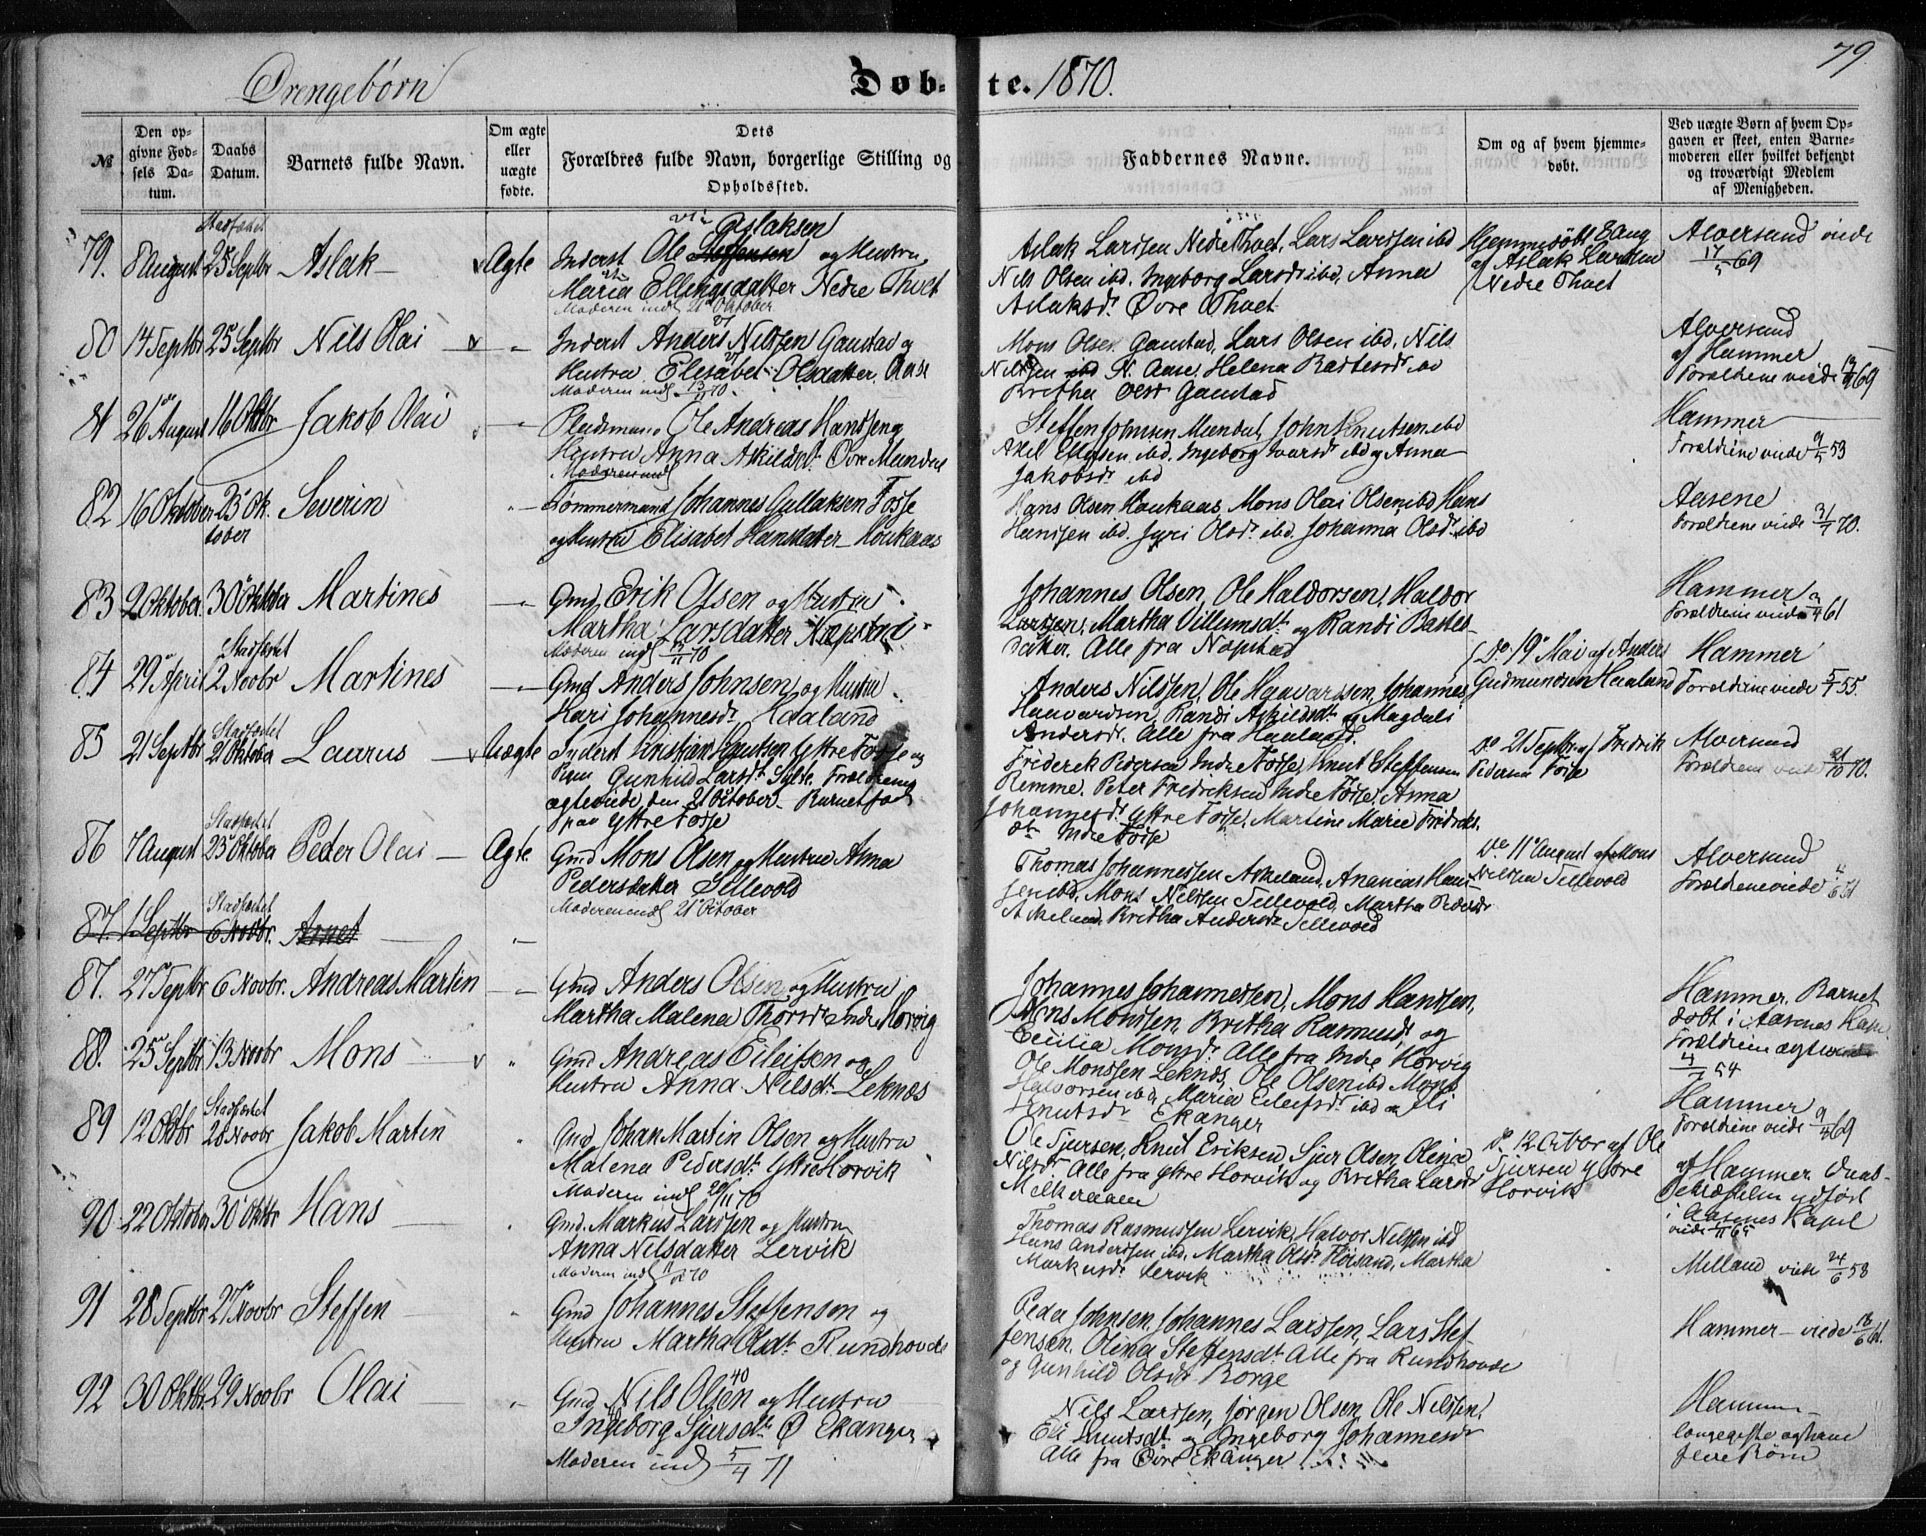 79.
Drengebørn
Døbte. 1870.
№
Den opgivne Fødsels Datum.
Daabs Datum.
Barnets fulde Navn.
Om ægte eller uægte fødte.
Dets Forældres fulde Navn, borgerlige Stilling og Opholdssted.
Faddernes Navne.
Om og af hvem hjemmedøbt.
Ved uægte Børn af hvem Opgaven er skeet, enten Barnemoderen eller hvilket bekjendt og troværdigt Medlem af Menigheden.
79. 8 August Stadfæstet 25 Septbr Aslak Ægte
Inderst Ole Steffensen Aslaksen og Hustru
Maria Ellingsdatter Nedre Thvet
Moderen indl 21 October
Aslak Larssen Nedre Thvet, Lars Larssen ibd
Nils Olsen ibd. Ingeborg Larsdr ibd, Anna
Aslaksdr Øvre Thvet
Hjemmedøbt af Aslak Larssen
Nedre Thvet
Alversund viede
17/5 69
80 14 Septbr 25 Septbr Nils Olai
Inderst Anders Nilssen Gaustad og
Hustru Elisabet Olsdatter Aase
Moderen indl 13/11 70.
Mons Olsen Gaustad, Lars Olsen ibd, Nils
Nilssen ibd N. Aase, Helena
Britha Olsdr Gaustad
Alversund
af Hammer
Forældrene viede 69
81 26 August 16 Oktbr Jakob Olai
Pladsmand Ole Andreas Hanssen og
Hustru Anna Askildsdr Øvre Mundal
Moderen indl
Steffen Johnsen Mundal, John Knutsen ibd
Ellingsen ibd. Ingeborg Ivarsdr ibd og Anna
Jakobsdr ibd
Hammer
Forældrene viede 9/5 53
82 16 Oktober 23 Oktober Severin
Tømmermand Johannes Gullaksen Fosse
og Hustru Elisabet Hansdatter Houkaas
Hans Olsen Houkaas, Mons Olai Olsen ibd Hans
Hanssen ibd. Guri Olsdr ibd. Johanna Olsdr ibd
Aasene
Forældrene viede 31/7 70.
83 2 Oktober. 30 Oktober Martines
Gmd Erik Olsen og Hustru
Martha Larsdatter Nøpstad
Moderen indl 13/11 70
Johannes Olsen, Ole Haldorsen, Haldor
Larssen, Martha Villumsdr og Randi Bastesdatter. Alle fra Nøpstad
Hammer
Forældrene viede 61
84 29 April Stadfæstet 2 Novbr Martines
Gmd Anders Johnsen og Hustru
Kari Johannesdr Haaland
Anders Nilssen, Ole Haavardssen, Johannes
Haavardsen, Randi Askildsdr og Magdali
Andersdr. Alle fra Haaland.
Do 19 Mai af Anders
Gudmundsen Haaland
Hammer
Forældrene viede 5/7 55.
85 21 Septbr Stadfæstet 21 Oktober Laurus Uægte
Inderst Kristian Knutsen Ytre Fosse og
Pigen Gunhild Larsdr Sylte. Forældrene
ægteviede den 21 October. Barnet født
paa Ytre Fosse
Friderik Pedersen Indre Fosse, Knut Steffensen
Remme. Peter Fredriksen Indre Fosse, Anna
Johannesdr Ytre Fosse, Martine Marie Fredriksdr Indre Fosse
Do 21 Septbr af Fridrik
Pedersen Fosse
Alversund
Forældrene viede 21/10 70.
86 7 August Stadfæstet 23 Oktober Peder Olai Ægte
Gmd Mons Olsen og Hustru Anna
Pedersdatter Tellevold
Moderen indl 21 October
Thomas Johannessen Askeland, Ananias Hanssen ibd, Mons Nilssen Tellevold, Martha Pedersdr
Askeland, Britha Andersdr Tellevold
Do 11 August af Mons
Nilssen Tellevold
Alversund
Forældrene viede
87. 1 Septbr Stadfæstet 6 Novbr. Arnet
87. 27 Septbr 6 Novbr. Andreas Martin
Gmd Anders Olsen og Hustru
Martha Malena Thorsdr Indre Horvig
Johannes Johannessen, Mons Hanssen,
Mons Monssen, Britha Rasmusdr og
Cecilia Monsdr Alle fra Indre Horvig
Hammer. Barnet
døbt i Aasenes Kapel
Forældrene ægteviede
54
88. 25 Septbr 13 Novbr Mons
Gmd Andreas Eilefsen og
Hustru Anna Nilsdr Leknes
Ole Monssen Leknes, Ole Olsen ibd Mons
Halvorsen ibd, Maria Eilefsdr ibd og Eli
Knutsdr Ekanger
Hammer
Forældrene viede 69
89 12 Oktbr Stadfæstet 28 Novbr Jakob Martin
Gmd Johan Martin Olsen og Hustru
Malena Pedersdr Ytre Horvik
Moderen indl 20/11 70
Ole Sjursen, Knut Eriksen, Sjur Olsen, Olina
Nilsdr Alle fra Ytre Horvik og Britha Larsdr
Melkeraaen
Do 12 Octbr af Ole
Sjursen Ytre
Horvik
af Hammer Daabsbekræftelsen udført
i Aasenes Kapel
90 22 Oktober 30 Oktbr Hans
Gmd. Markus Larssen og Hustru
Anna Nilsdatter Lervik
Moderen indl 70
Thomas Rasmussen Lervik, Halvor Nilssen ibd
Hans Anderssen ibd, Martha Olsdr Floisand, Martha
Markusdr Lervik
Melland viede 24/6 58
91 28 Septbr 27 Novbr Steffen
Gmd Johannes Steffensen og
Hustru Martha Olsdr Rundhovde
Peder Johnsen, Johannes Larssen, Lars Steffensen, Olina Steffensdr Alle fra Rundhovde
og Gunhild Olsdr Borge
Hammer viede 18/6 61.
92 30 Oktbr 29 Novbr Olai
Gmd Nils Olsen og Hustru
Ingeborg Sjursdr Ø Ekanger
Moderen indl 5/4 71
Nils Larssen, Jørgen Olsen, Ole Nilssen,
Eli Knutsdr og Ingeborg Johannesdr
Alle fra Øvre Ekanger
Hammer
længe gifte og have
flere Børn